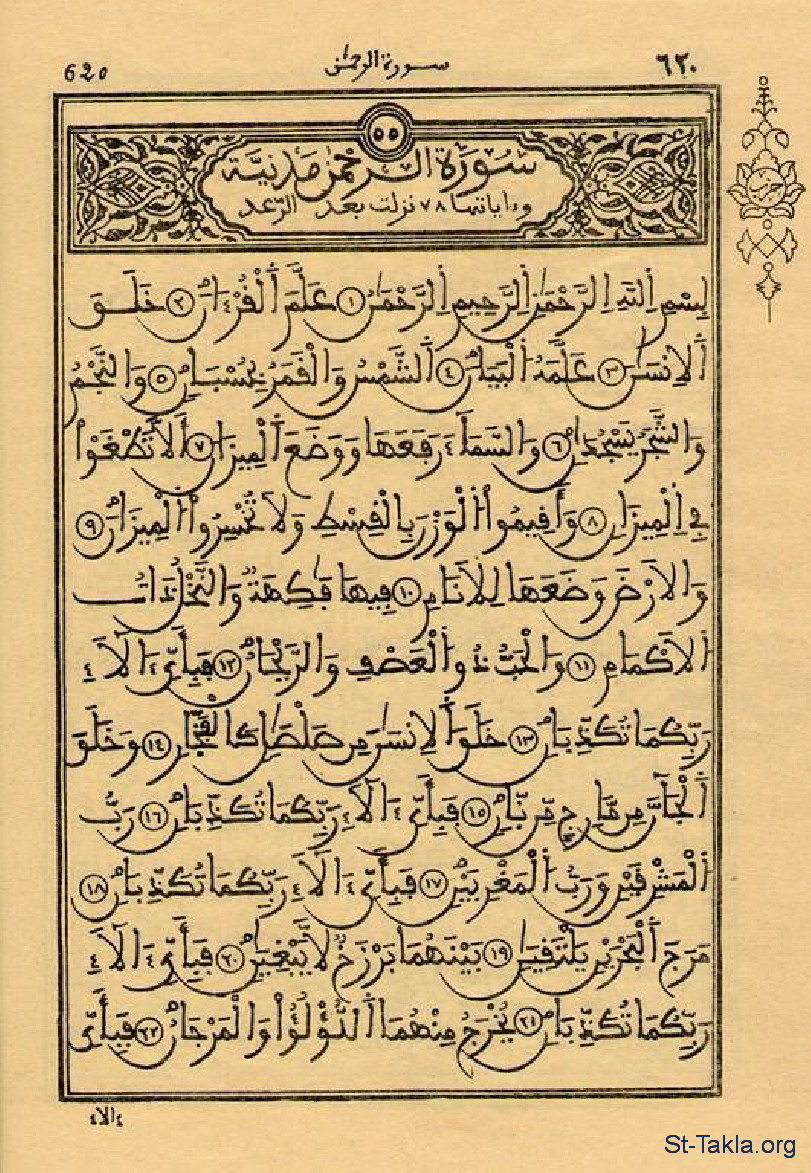 620 سورة الرحمٰن ٦٢٠
٥٥
سُورَةُ الرَّحْمٰنِ مَدَنِيَّة
وءاياتها ٧٨ نزلت بعد الرّعد
بِسْمِ اِللَّهِ اِلرَّحْمَٰنِ اِلرَّحِيمِ اِلرَّحْمَٰنُ ١ عَلَّمَ اَلْقُرْءَانَ ٢ خَلَقَ
اَلِانسَٰنَ ٣ عَلَّمَهُ اُلْبَيَانَ ٤ اَلشَّمْسُ وَالْقَمَرُ بِحُسْبَانٍ ٥ وَالنَّجْمُ
وَالشَّجَرُ يَسْجُدَانِ ٦ وَالسَّمَآءَ رَفَعَهَا وَوَضَعَ اَلْمِيزَانَ ٧ أَلَّا تَطْغَوْا
فِي اِلْمِيزَانِ ٨ وَأَقِيمُواْ اُلْوَزْنَ بِالْقِسْطِ وَلَا تُخْسِرُواْ اُلْمِيزَانَ ٩
وَالَارْضَ وَضَعَهَا لِلَانَامِ ١٠ فِيهَا فَٰكِهَةٌ وَالنَّخْلُ ذَاتُ
اُلَاكْمَامِ ١١ وَالْحَبُّ ذُو اُلْعَصْفِ وَالرَّيْحَانُ ١٢ فَبِأَيِّ ءَالَآءِ
رَبِّكُمَا تُكَذِّبَانِ ١٣ خَلَقَ اَلِانسَٰنَ مِن صَلْصَٰلٍ كَالْفَخَّارِ ١٤ وَخَلَقَ
اَلْجَآنَّ مِن مَّارِجٍ مِّن نَّارٍ ١٥ فَبِأَيِّ ءَالَآءِ رَبِّكُمَا تُكَذِّبَانِ ١٦ رَبُّ
اُلْمَشْرِقَيْنِ وَرَبُّ اُلْمَغْرِبَيْنِ ١٧ فَبِأَيِّ ءَالَآءِ رَبِّكُمَا تُكَذِّبَانِ ١٨
مَرَجَ اَلْبَحْرَيْنِ يَلْتَقِيَٰنِ ١٩ بَيْنَهُمَا بَرْزَخٌ لَّا يَبْغِيَٰنِ ٢٠ فَبِأَيِّ ءَالَآءِ
رَبِّكُمَا تُكَذِّبَانِ ٢١ يُخْرَجُ مِنْهُمَا اَللُّؤْلُؤُاْ وَالْمَرْجَانُ ٢٢ فَبِأَيِّ
ءالاء
St-Takla.org